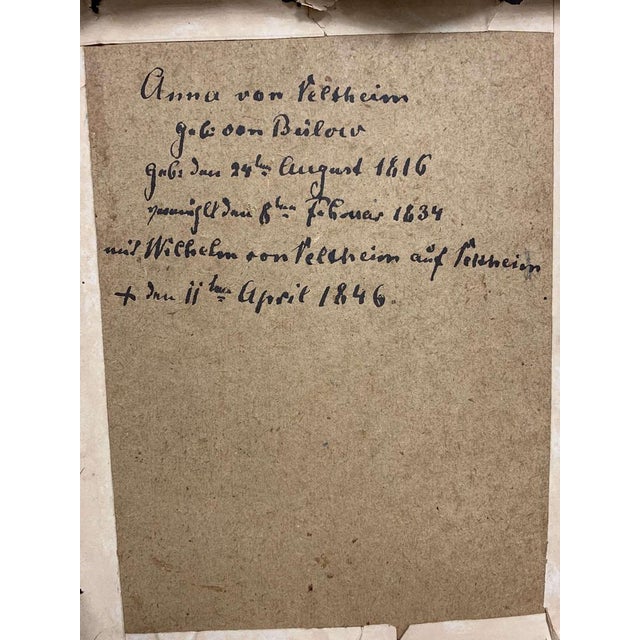 Anna von Veltheim
geb: von Bülow
geb: den 24ten August 1816
vermählt den 8ten Februar 1834
mit Wilhelm von Veltheim auf Veltheim
+ den 11ten April 1846.